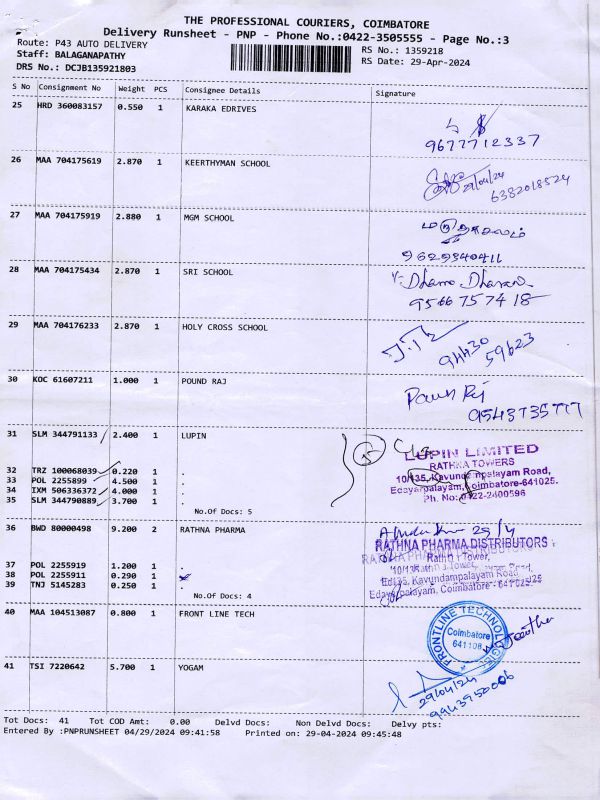 THE PROFESSIONAL COURIERS, COIMBATORE
Delivery Runsheet - PNP - Phone No.:0422-3505555 - Page No.:3
Route: P43 AUTO DELIVERY RS No.: 1359218
Staff: BALAGANAPATHY RS Date: 29-Apr-2024
DRS No.: DCJB135921803
S No Consignment No Weight PCS Consignee Details Signature
25 HRD 360083157 0.550 1 KARAKA EDRIVES
9677712337
26 MAA 704175619 2.870 1 KEERTHYMAN SCHOOL
29/04/24
6382018524
27 MAA 704175919 2.880 1 MGM SCHOOL
9629940411
28 MAA 704175434 2.870 1 SRI SCHOOL
9566757418
29 MAA 704176233 2.870 1 HOLY CROSS SCHOOL
94430 59623
30 KOC 61607211 1.000 1 POUND RAJ
Poun Raj
9543735777
31 SLM 344791133 2.400 1 LUPIN
LUPIN LIMITED
RATHNA TOWERS
10/135, Kavundampalayam Road,
Edayarpalayam, Coimbatore-641025.
Ph. No.: 0422-2400596
32 TRZ 100068039 0.220 1 .
33 POL 2255899 4.500 1 .
34 IXM 506336372 4.000 1 .
35 SLM 344790889 3.700 1 .
No.Of Docs: 5
36 BWD 80000498 9.200 2 RATHNA PHARMA
29/4
RATHNA PHARMA DISTRIBUTORS
Rathna Tower,
10/135, Kavundampalayam Road,
Edayarpalayam, Coimbatore - 641 025
37 POL 2255919 1.200 1 .
38 POL 2255911 0.290 1
39 TNJ 5145283 0.250 1 .
No.Of Docs: 4
40 MAA 104513087 0.800 1 FRONT LINE TECH
FRONTLINE TECHNOLOGIES
Coimbatore
641 108
41 TSI 7220642 5.700 1 YOGAM
29/04/24
9943950006
Tot Docs: 41 Tot COD Amt: 0.00 Delvd Docs: Non Delvd Docs: Delvy pts:
Entered By :PNPRUNSHEET 04/29/2024 09:41:58 Printed on: 29-04-2024 09:45:48